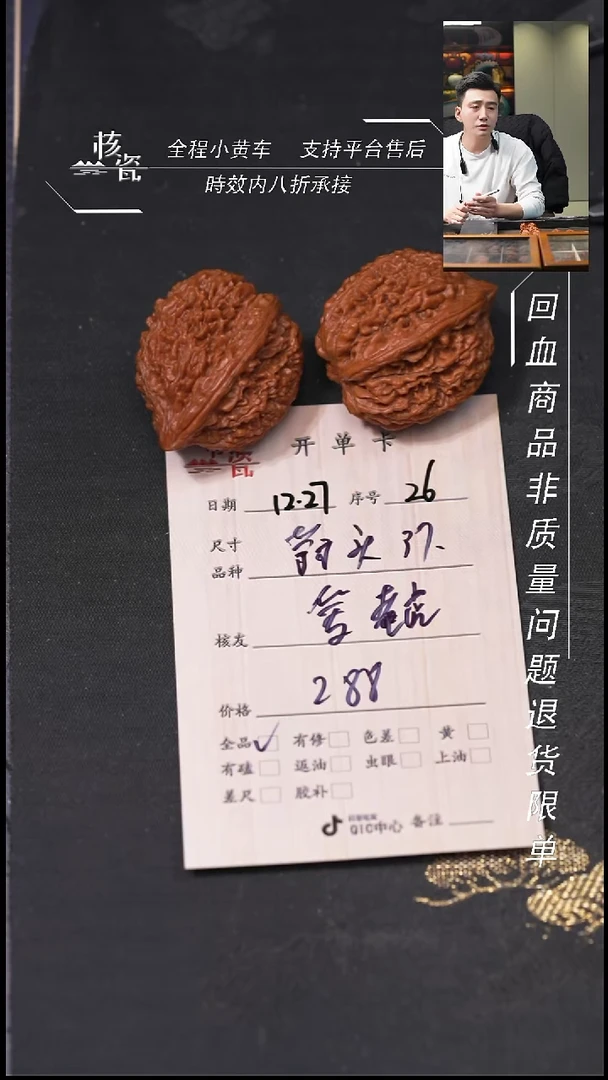 核瓷
全程小黄车 支持平台售后
時效内八折承接
回血商品非质量问题退货限单
开单卡
日期 12.27 序号 26
尺寸
品种 头 37.
核发
价格 288
全品 ✓ 有修 色差 黄
有磕 返油 虫眼 上油
差尺 胶补
QIC中心 备注